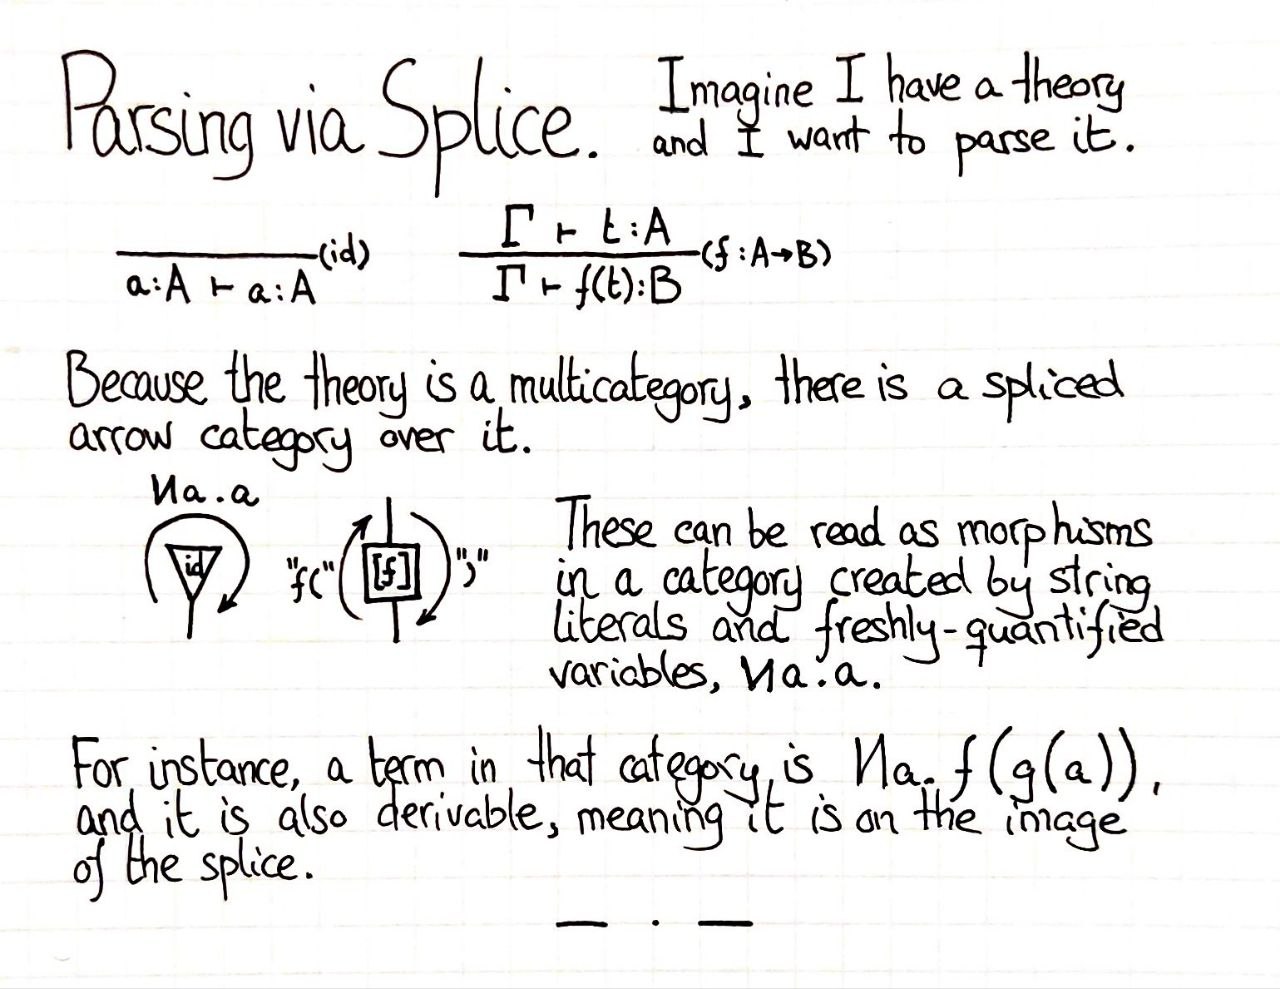 Parsing via Splice.
Imagine I have a theory
and I want to parse it.
(id)
a:A ⊢ a:A
Γ ⊢ t:A
(f:A→B)
Γ ⊢ f(t):B
Because the theory is a multicategory, there is a spliced
arrow category over it.
Иa.a
id
"f(" [f] ")"
These can be read as morphisms
in a category created by string
literals and freshly-quantified
variables, Иa.a.
For instance, a term in that category is Иa.f(g(a)),
and it is also derivable, meaning it is on the image
of the splice.
— . —